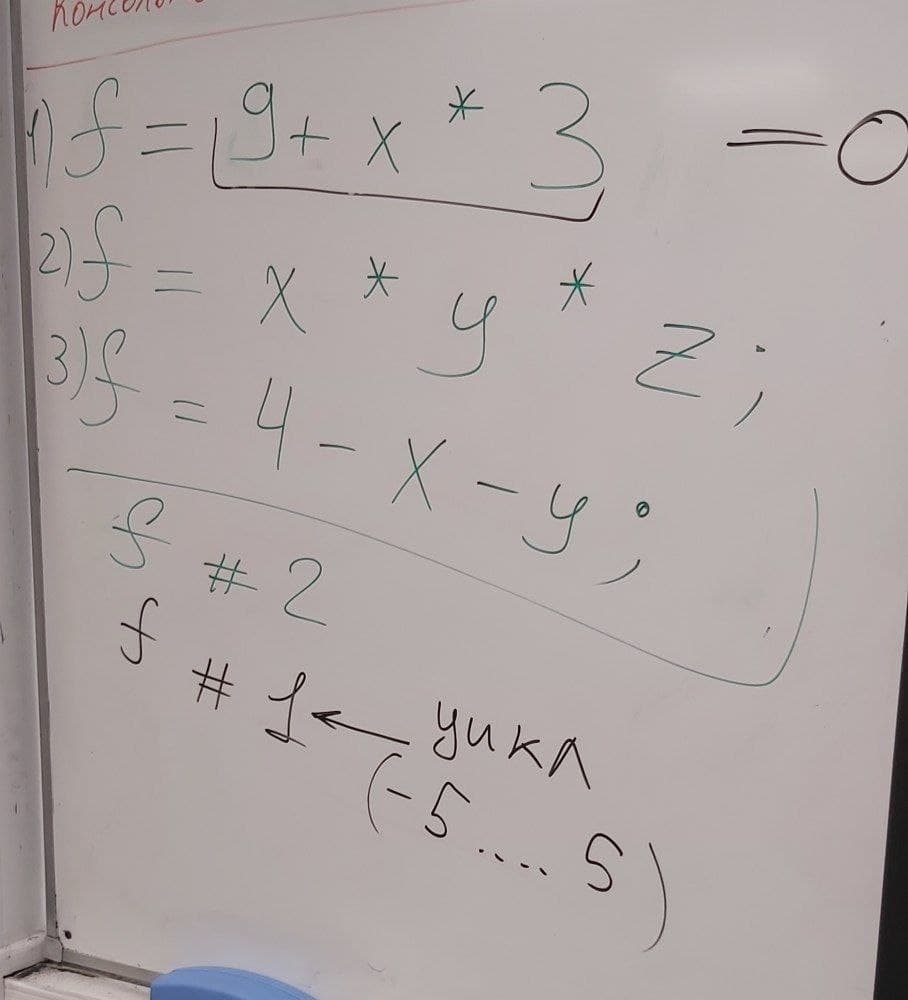 1) f = 9 + x * 3 = 0
2) f = x * y * z;
3) f = 4 - x - y;
f # 2
f # 1 ← цикл
(-5 .... 5)